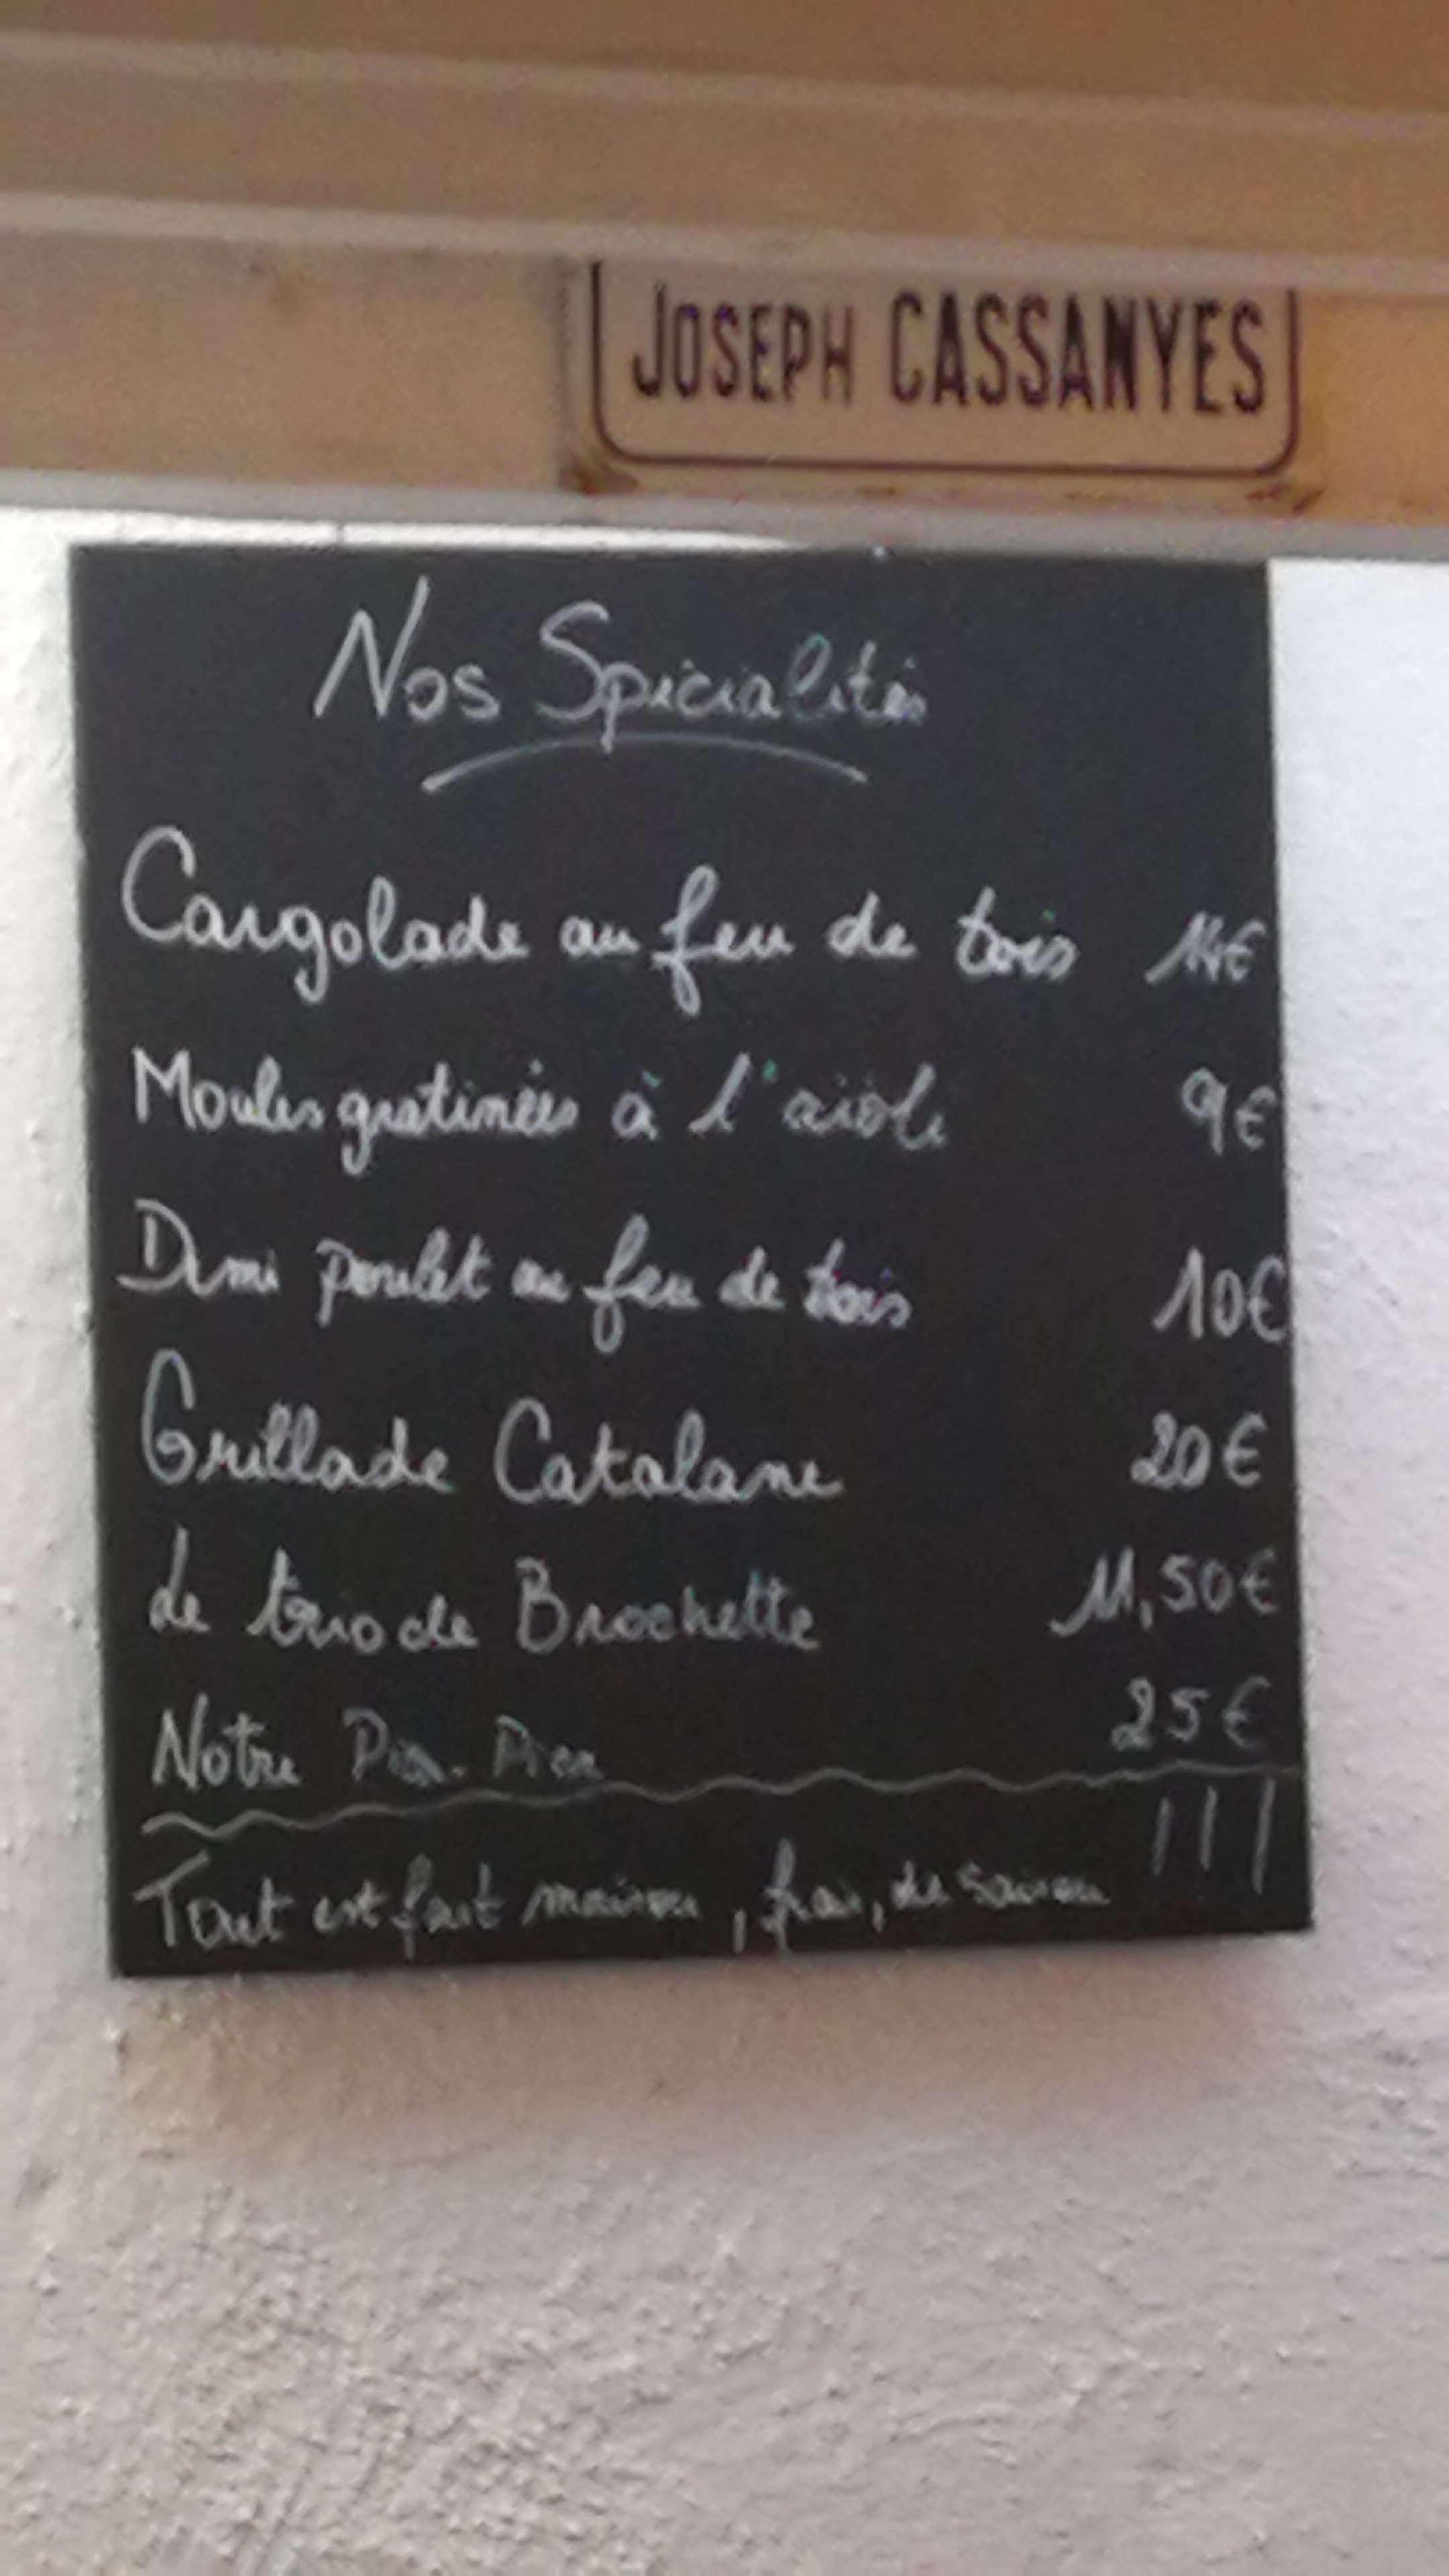 JOSEPH CASSANYES
Nos Spécialités
Cargolade au feu de bois 14€
Moules gratinées à l'aïoli 9€
Demi poulet au feu de bois 10€
Grillade Catalane 20€
Le trio de Brochette 11,50€
Notre 25€
Tout est fait maison, frais, de saison !!!